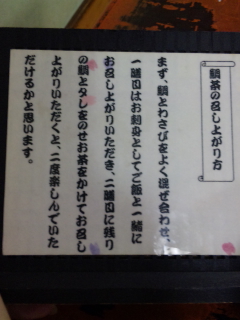 鯛茶の召し上がり方
まず、鯛とわさびをよく混ぜ合わせ、
一膳目はお刺身としてご飯と一緒に
お召し上がりいただき、二膳目に残り
の鯛とダシをのせお茶をかけてお召し
上がりいただくと、二度楽しんでいた
だけるかと思います。